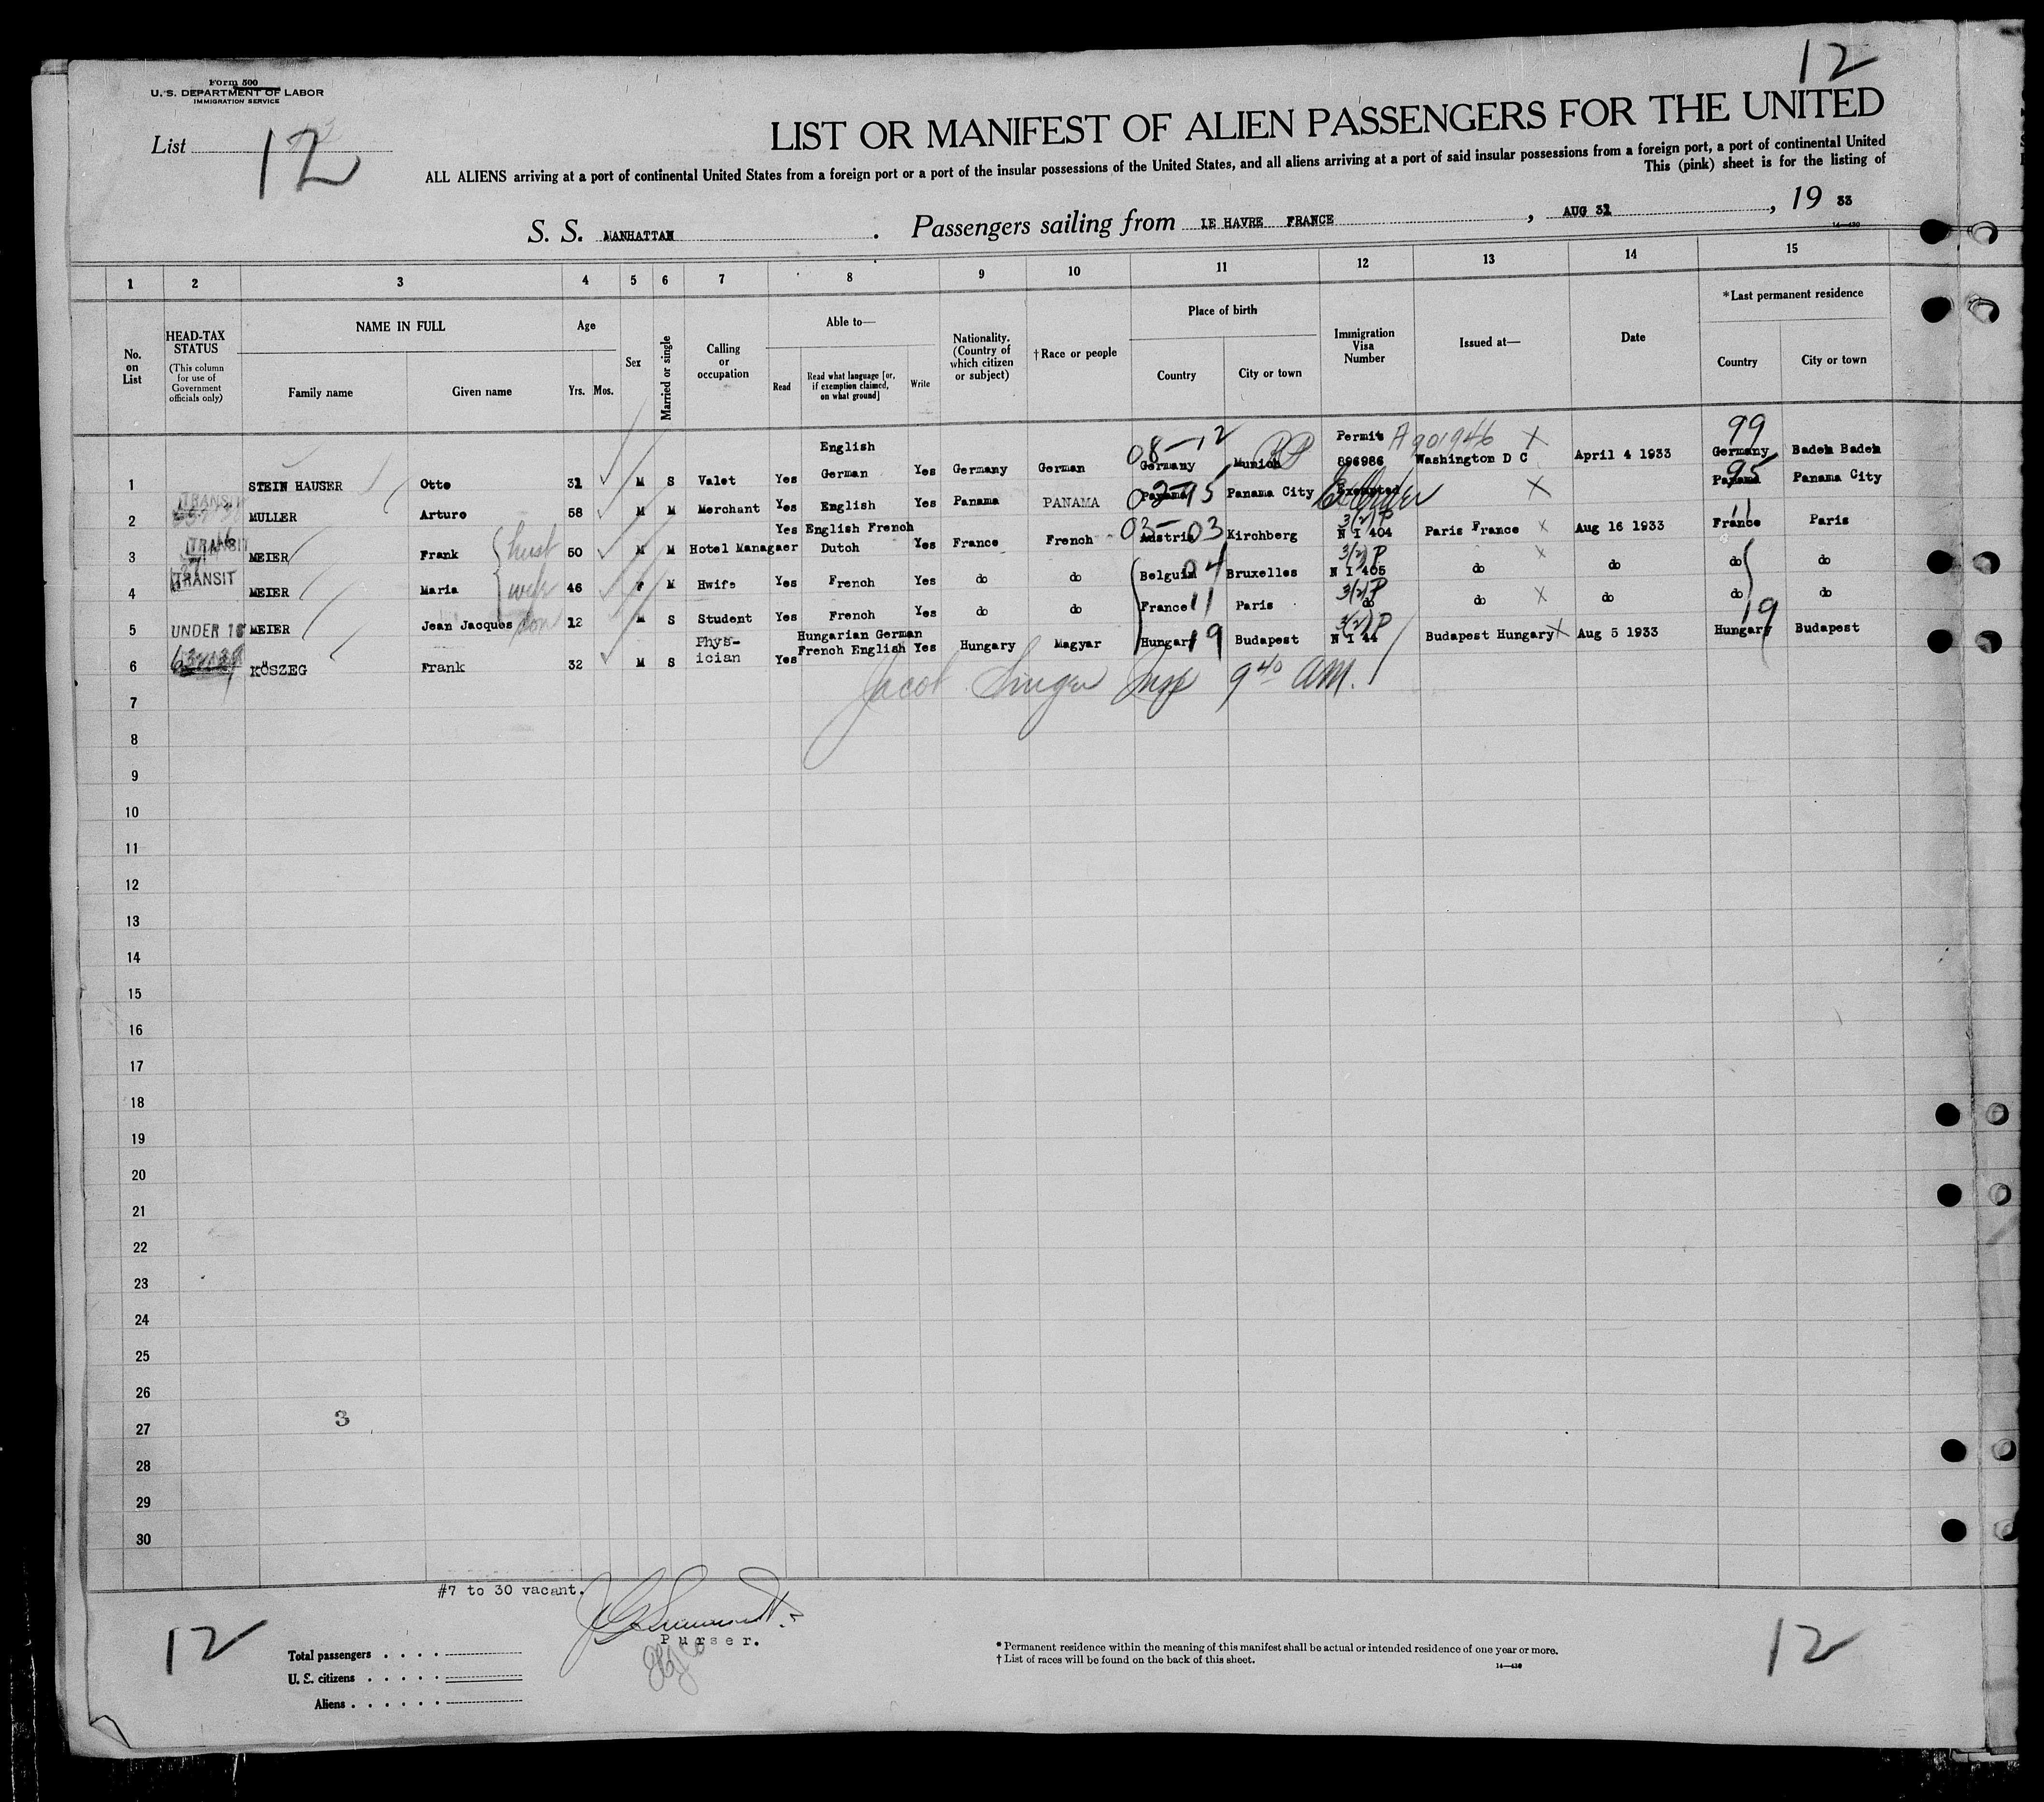 12
Form 500
U. S. DEPARTMENT OF LABOR
IMMIGRATION SERVICE
List 12
LIST OR MANIFEST OF ALIEN PASSENGERS FOR THE UNITED
ALL ALIENS arriving at a port of continental United States from a foreign port or a port of the insular possessions of the United States, and all aliens arriving at a port of said insular possessions from a foreign port, a port of continental United
This (pink) sheet is for the listing of
S. S. MANHATTAN. Passengers sailing from LE HAVRE FRANCE, AUG 31, 19 33
14—430
1 2 3 4 5 6 7 8 9 10 11 12 13 14 15
No. on List
HEAD-TAX STATUS
(This column for use of Government officials only)
NAME IN FULL
Family name Given name
Age
Yrs. Mos.
Sex
Married or single
Calling or occupation
Able to—
Read Read what language [or, if exemption claimed, on what ground] Write
Nationality. (Country of which citizen or subject)
†Race or people
Place of birth
Country City or town
Immigration Visa Number
Issued at—
Date
*Last permanent residence
Country City or town
English 08-12 Permit A901946 X 99
1 STEIN HAUSER Otto 31 M S Valet Yes German Yes Germany German Germany Munich 896986 Washington D C April 4 1933 Germany Baden Baden
TRANSIT 95
2 MULLER Arturo 58 M M Merchant Yes English Yes Panama PANAMA Panama 03-95 Panama City Exempted X Panama Panama City
TRANSIT Yes English French 03-03 3(2)P 11
3 MEIER Frank husb 50 M M Hotel Managaer Dutch Yes France French Austria Kirchberg N I 404 Paris France X Aug 16 1933 France Paris
TRANSIT 3(2)P X
4 MEIER Maria wife 46 F M Hwife Yes French Yes do do Belguim 04 Bruxelles N I 405 do do do do
3(2)P
5 UNDER 16 MEIER Jean Jacques son 12 M S Student Yes French Yes do do France 11 Paris do do X do do do
Phys- Hungarian German 3(2)P 19
6 KÖSZEG Frank 32 M S ician Yes French English Yes Hungary Magyar Hungary 19 Budapest N I 44 Budapest Hungary X Aug 5 1933 Hungary Budapest
Jacob Singer Insp 9 40 AM.
7
8
9
10
11
12
13
14
15
16
17
18
19
20
21
22
23
24
25
26
3
27
28
29
30
#7 to 30 vacant.
Purser.
12
Total passengers
U. S. citizens
Aliens
* Permanent residence within the meaning of this manifest shall be actual or intended residence of one year or more.
† List of races will be found on the back of this sheet.
14—430
12